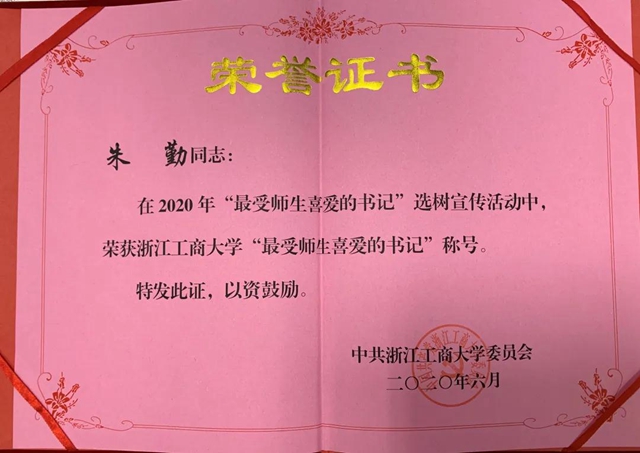 荣誉证书
朱 勤同志：
在 2020 年“最受师生喜爱的书记”选树宣传活动中，
荣获浙江工商大学“最受师生喜爱的书记”称号。
特发此证，以资鼓励。
中共浙江工商大学委员会
二〇二〇年六月